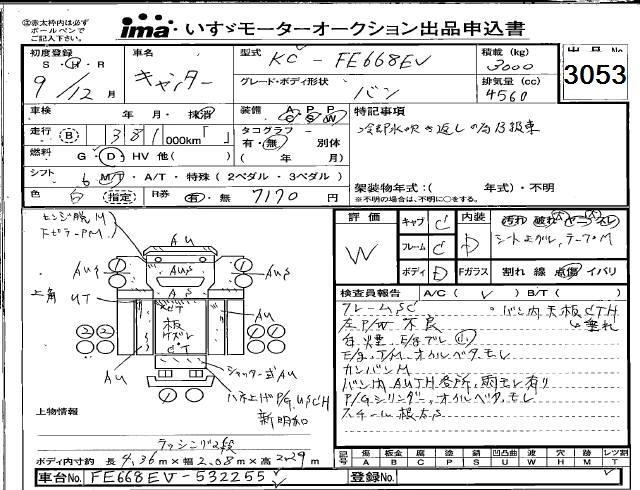 ㊟赤太枠内は必ず
ボールペンで
ご記入下さい。
ima いすゞモーターオークション出品申込書
初度登録
S・H・R
9/12月
車名
キャンター
型式
KC-FE668EV
グレード・ボディ形状
バン
積載 (kg)
3000
排気量 (cc)
4560
出品No
3053
車検
年 月・抹消
装備 A/C P/S P/W
特記事項
冷却水吹き返しの為B扱車
走行 (B) 381,000km「 」
タコグラフ
有・無 別体
( 年 月)
燃料 G・D・HV 他( )
シフト 6 MT・A/T・特殊 (2ペダル・3ペダル)
架装物年式:( 年式)・不明
色 白 指定
R券
有・無 7170 円
評価
W
キャブ C
フレーム C
ボディ D
内装 D
汚れ 破れ ヤニ スレ
シート上グル,テープM
Fガラス 割れ 線 点傷 イバリ
ヒンジ脱M
下ピラーPM
AU
AUS
上角
UT
板
ケズレ
CT
シャッター式AU
ハネ上げP/G,USCH
新明和
検査員報告 A/C( ✓ ) B/T( )
フレームSC
バン内天板CTH
垂れ
左P/W不良
白煙,E/gブレ
E/g,T/M,オイルベタ,モレ
カンバンM
バン内AUTH各所,雨モレ有り
P/Gシリンダー,オイルベタ,モレ
スチール根太S
上物情報
ラッシング2段
ボディ内寸約 長4.36m×幅2.08m×高2.29m
記号 傷A 板金B 腐C 塗P 錆S 凹凸曲U 波W 穴H 外M レツ割T
車台No. FE668EV-532255
登録No.